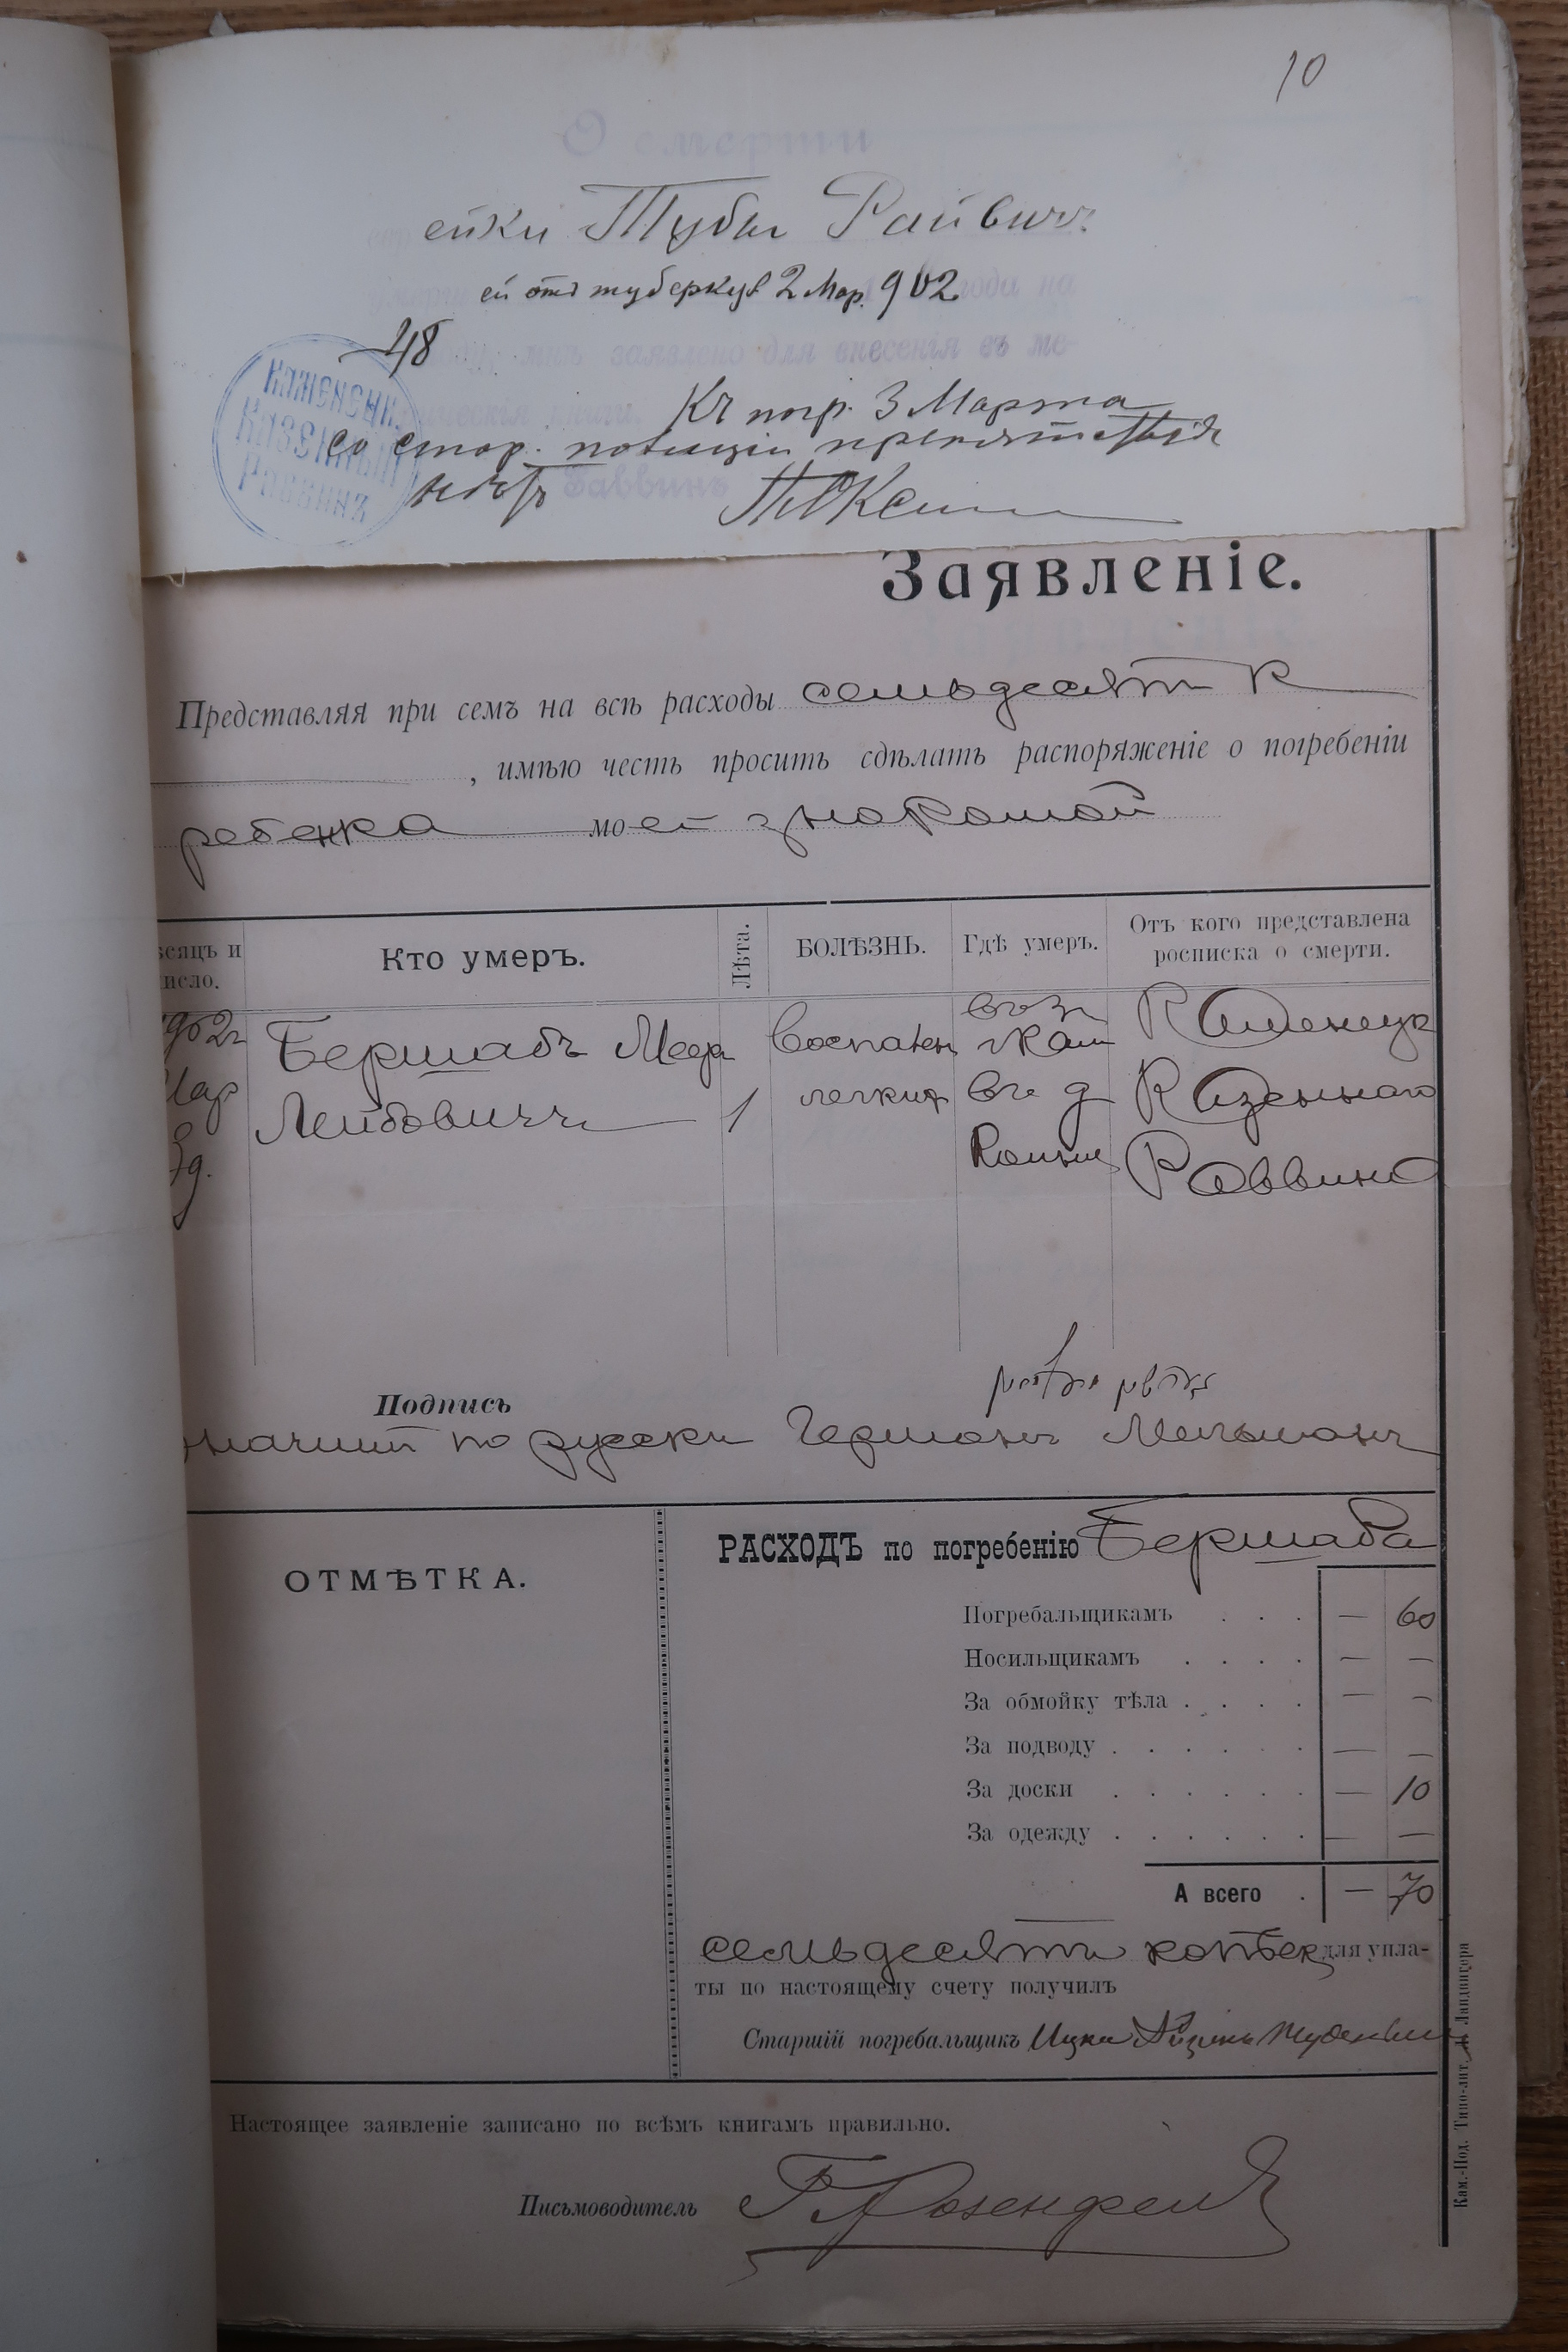 10
ейки Тубы Райвичъ
ей отъ туберкул 2 Мар. 902
48
Каменецк.
Казенный
Раввинъ
Къ погр. 3 Марта
со стор. полиціи препятствія
нѣтъ
Заявленіе.
Представляя при семъ на всѣ расходы семьдесят к
, имѣю честь просить сдѣлать распоряженіе о погребеніи
ребенка моей знакомой
сяцъ и
исло.
Кто умеръ.
Лѣта.
БОЛѢЗНЬ.
Гдѣ умеръ.
Отъ кого представлена
росписка о смерти.
902г
Мар
3д.
Бершадъ Меер
Лейбовичъ
1
воспален
легких
въ д
Каменецк
Казеннаго
Раввина
Подпись
по русски Германъ Мельманъ
ОТМѢТКА.
РАСХОДЪ по погребенію Бершада
Погребальщикамъ . . . — 60
Носильщикамъ . . . . — —
За обмойку тѣла . . . . — —
За подводу . . . . . . — —
За доски . . . . . . — 10
За одежду . . . . . . — —
А всего . — 70
семьдесятъ копѣек для упла-
ты по настоящему счету получилъ
Старшій погребальщикъ Ицко
Настоящее заявленіе записано по всѣмъ книгамъ правильно.
Письмоводитель Розенфельд
Кам.-Под. Типо-лит. Ландвигера